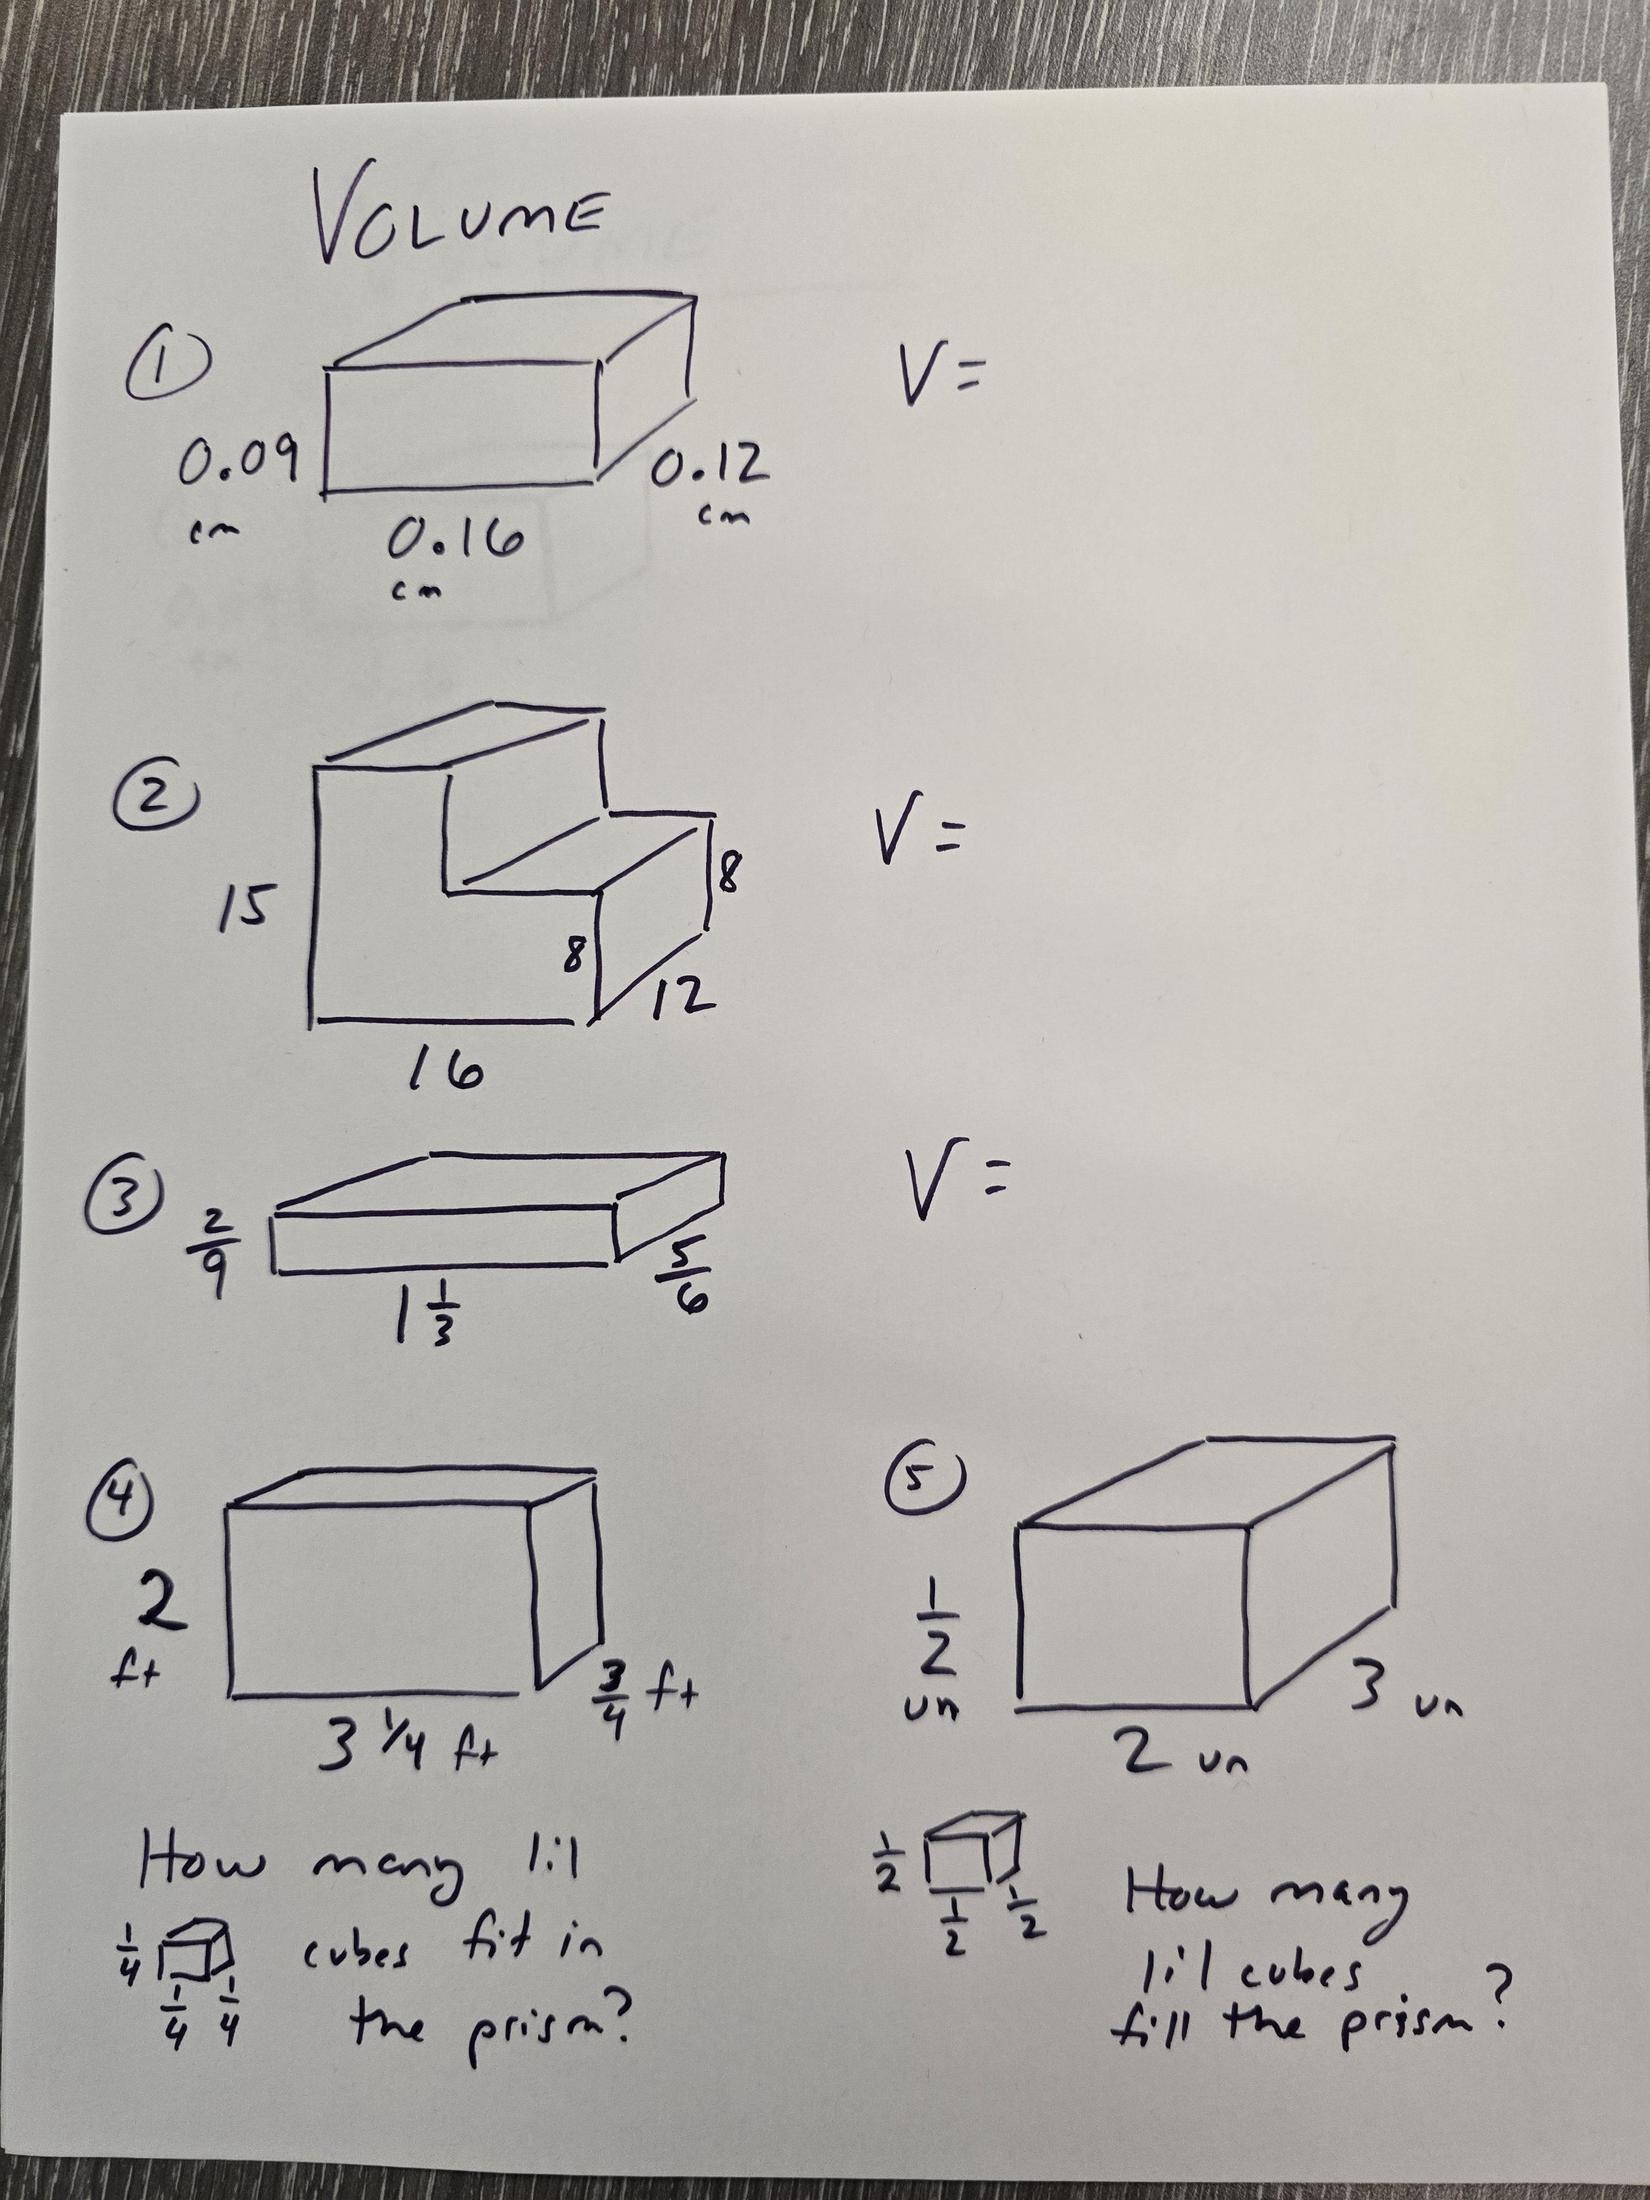 VOLUME
① V=
0.09 cm
0.16 cm
0.12 cm
② V=
15
8
8
12
16
③ V=
2/9
1 1/3
5/6
④
2 ft
3 1/4 ft
3/4 ft
How many lil
1/4 1/4 1/4 cubes fit in
the prism?
⑤
1/2 un
2 un
3 un
1/2 1/2 1/2
How many
lil cubes
fill the prism?